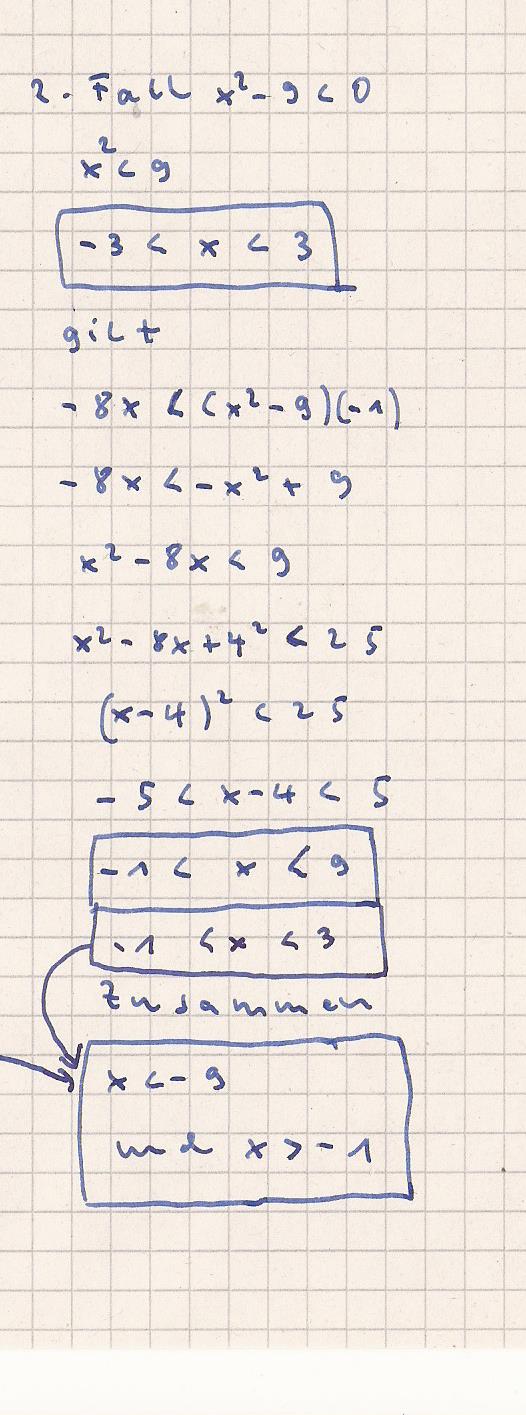 2. Fall x² - 9 < 0
x² < 9
-3 < x < 3
gilt
-8x < (x² - 9)(-1)
-8x < -x² + 9
x² - 8x < 9
x² - 8x + 4² < 25
(x-4)² < 25
-5 < x-4 < 5
-1 < x < 9
-1 < x < 3
Zusammen
x < -9
und x > -1